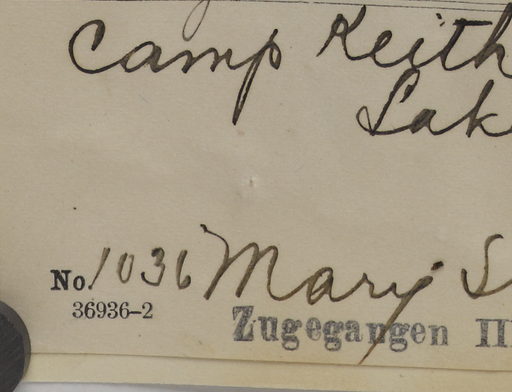 Camp Keith
Lak
No. 1036 Mary S
36936-2
Zugegangen II